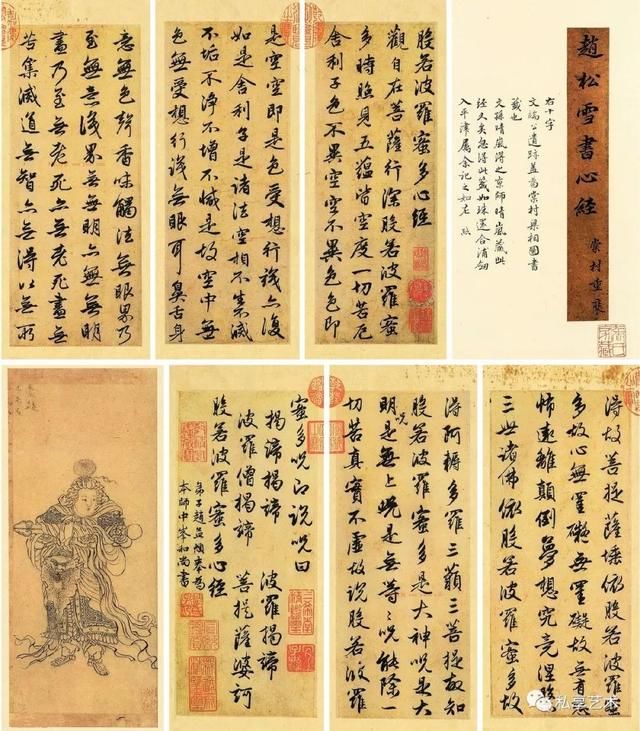 趙松雪書心經
棠村重裝
右十字
文端公遺跡蓋為棠村梁相國書
藏也
文孫晴嵐得之京師晴嵐藏此
經久矣忽得此籖如珠還合浦劍
入平津屬余記之如左
般若波羅蜜多心經
觀自在菩薩行深般若波羅蜜
多時照見五蘊皆空度一切苦厄
舍利子色不異空空不異色色即
是空空即是色受想行識亦復
如是舍利子是諸法空相不生不滅
不垢不淨不增不減是故空中無
色無受想行識無眼耳鼻舌身
意無色聲香味觸法無眼界乃
至無意識界無無明亦無無明
盡乃至無老死亦無老死盡無
苦集滅道無智亦無得以無所
得故菩提薩埵依般若波羅蜜
多故心無罣礙無罣礙故無有恐
怖遠離顛倒夢想究竟涅槃
三世諸佛依般若波羅蜜多故
得阿耨多羅三藐三菩提故知
般若波羅蜜多是大神呪是大
明呪是無上呪是無等等呪能除一
切苦真實不虛故說般若波羅
蜜多呪即說呪曰
揭諦揭諦 波羅揭諦
波羅僧揭諦 菩提薩婆訶
般若波羅蜜多心經
弟子趙孟頫奉為
本師中峯和尚書
私享艺术